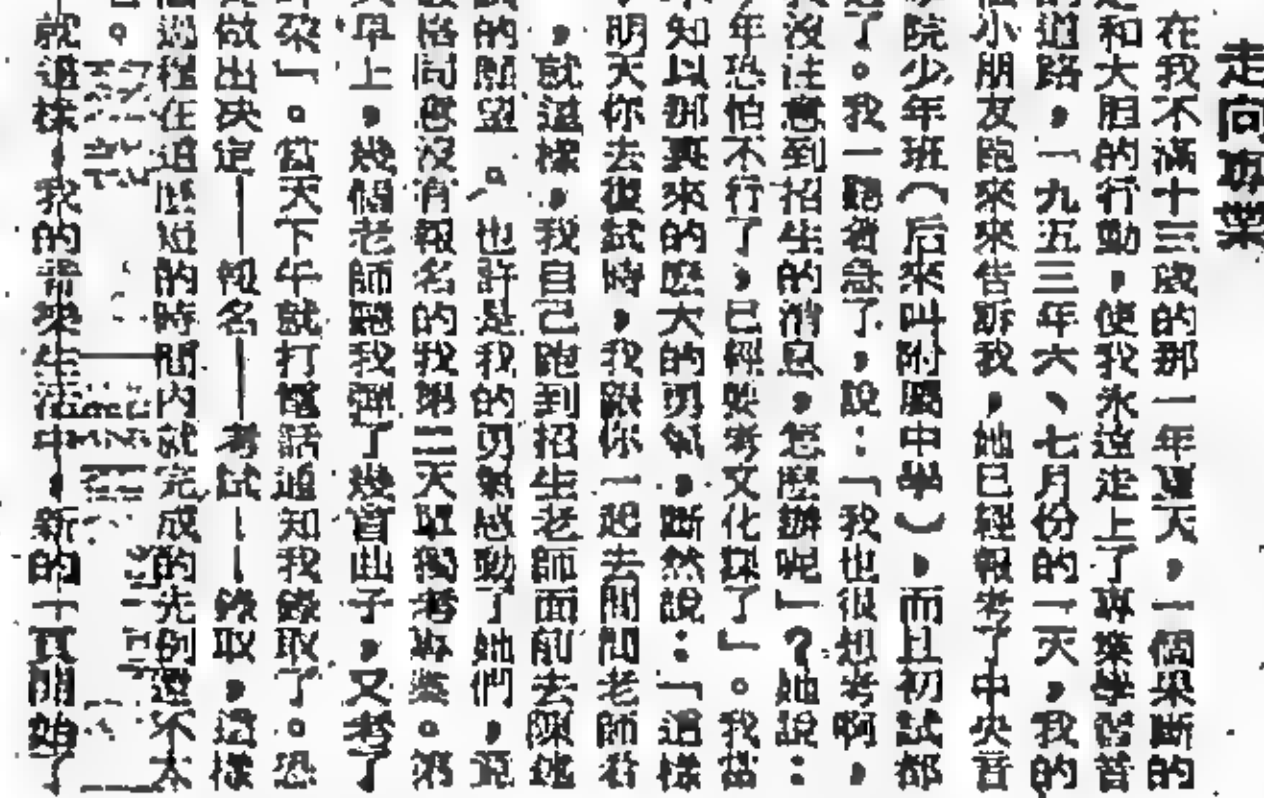 走向專業
在我不滿十三歲的那一年夏天，一個果斷的
和大胆的行動，使我永遠走上了專業學習音
的道路，一九五三年六、七月份的一天，我的
小朋友跑來來告訴我，她已經報考了中央音
院少年班（后來叫附屬中學），而且初試都
了。我一聽著急了，說：「我也很想考啊，
我沒注意到招生的消息，怎麼辦呢」？她說：
年恐怕不行了，已經要考文化課了」。我當
知以那裏來的麼大的勇氣，斷然說：「這樣
明天你去復試時，我跟你一起去問問老師看
，就這樣，我自己跑到招生老師面前去陳述
的願望。也許是我的勇氣感動了她們，
同意沒有報名的我第二天單獨考專業。第
早上，幾個老師聽我彈了幾首曲子，又考了
」。當天下午就打電話通知我錄取了。恐
做出決定——報名——考試——錄取，這樣
過程在這麼短的時間內就完成的先例還不太
。
就這樣，我的音樂生活中，新的一頁開始了